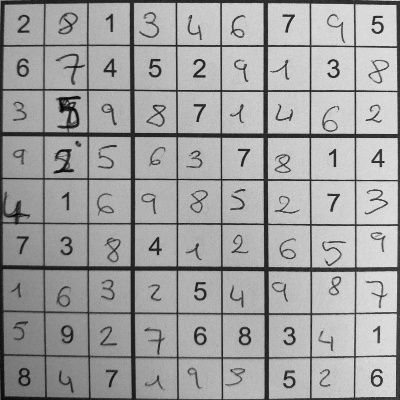 2 8 1 3 4 6 7 9 5
6 7 4 5 2 9 1 3 8
3 5 9 8 7 1 4 6 2
9 2 5 6 3 7 8 1 4
4 1 6 9 8 5 2 7 3
7 3 8 4 1 2 6 5 9
1 6 3 2 5 4 9 8 7
5 9 2 7 6 8 3 4 1
8 4 7 1 9 3 5 2 6